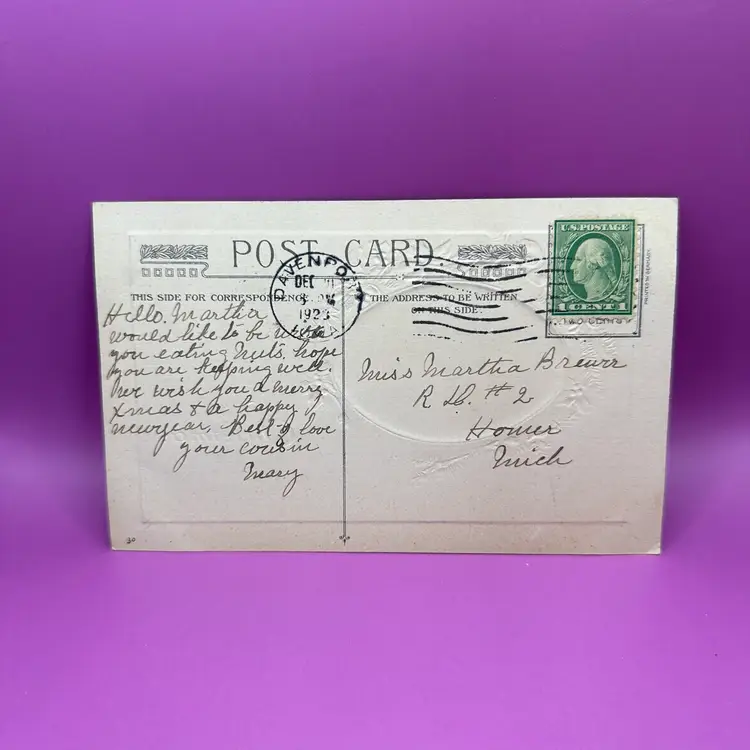 POST CARD
THIS SIDE FOR CORRESPONDENCE
THE ADDRESS TO BE WRITTEN
ON THIS SIDE.
U.S. POSTAGE
1 CENT 1
TWO CENTS
PRINTED IN GERMANY
DAVENPORT
DEC
1923
IOWA
Hello, Martha
would like to be with
you eating nuts, hope
you are keeping well.
we wish you a merry
xmas & a happy
newyear, Best of love
your cousin
Mary
Miss Martha Brewer
R D. # 2
Homer
Mich
30